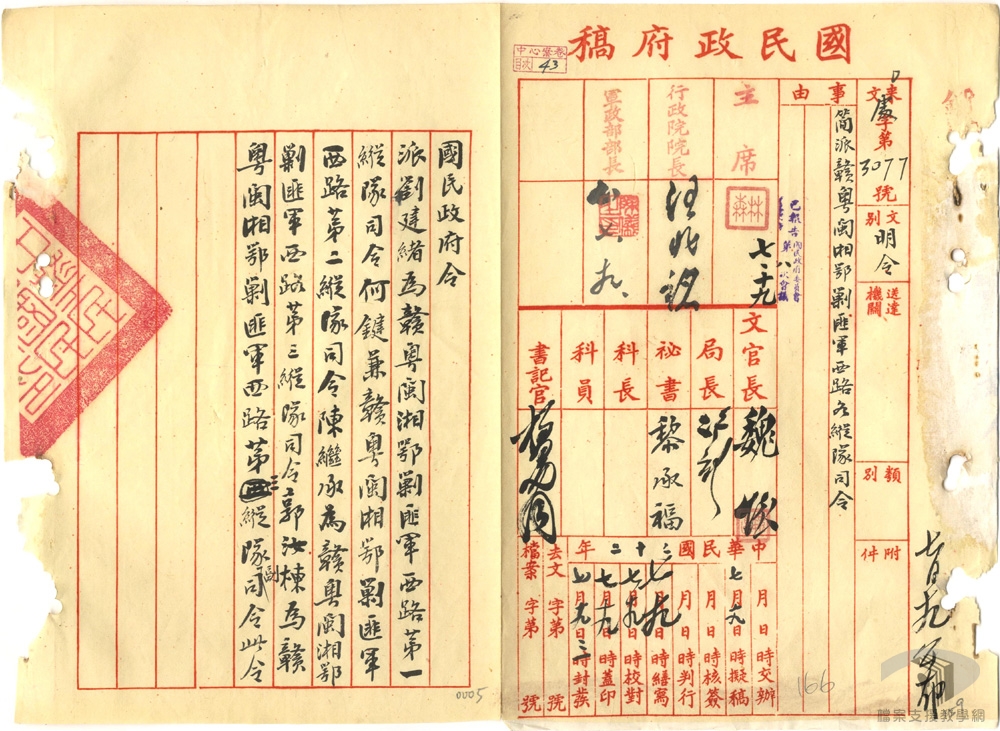 國民政府稿
中心當卷
目次 43
來文處字第3077號
文別 明令
送達機關
類別
附件
事由
簡派贛粵閩湘鄂剿匪軍西路各縱隊司令
主席
七、十九
行政院院長
汪兆銘
軍政部部長
文官長
魏懷
局長
祕書
黎承福
科長
科員
書記官
中華民國二十二年
月 日 時交辦
七月九日 時擬稿
月 日 時核簽
月 日 時判行
七月九日 時繕寫
七月九日 時校對
七月九日 時蓋印
七月九日三時封發
去文 字第 號
檔案 字第 號
七月九日公布
166
檔案支援教學網
國民政府令
派劉建緒為贛粵閩湘鄂剿匪軍西路第一
縱隊司令何鍵兼贛粵閩湘鄂剿匪軍
西路第二縱隊司令陳繼承為贛粵閩湘鄂
剿匪軍西路第三縱隊司令郭汝棟為贛
粵閩湘鄂剿匪軍西路第三縱隊副司令此令
0005